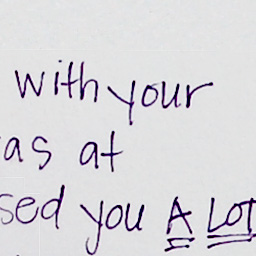 with your
as at
sed you A LOT